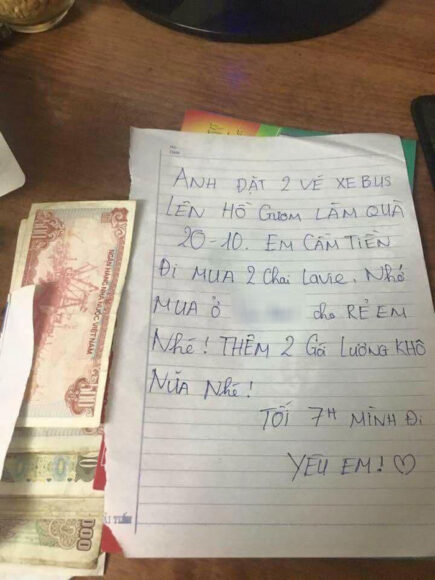 ANH ĐẶT 2 VÉ XE BUS
LÊN HỒ GƯƠM LÀM QUÀ
20-10. EM CẦM TIỀN
ĐI MUA 2 Chai Lavie. Nhé
MUA Ở cho RẺ EM
Nhé! THÊM 2 Gói LƯƠNG KHÔ
NỮA Nhé!
TỐI 7H MÌNH ĐI
YÊU EM! ♡
NGÂN HÀNG NHÀ NƯỚC VIỆT NAM